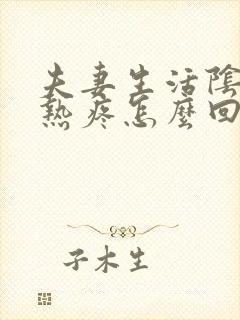 夫妻生活陰
熱疼怎麼回
子木生